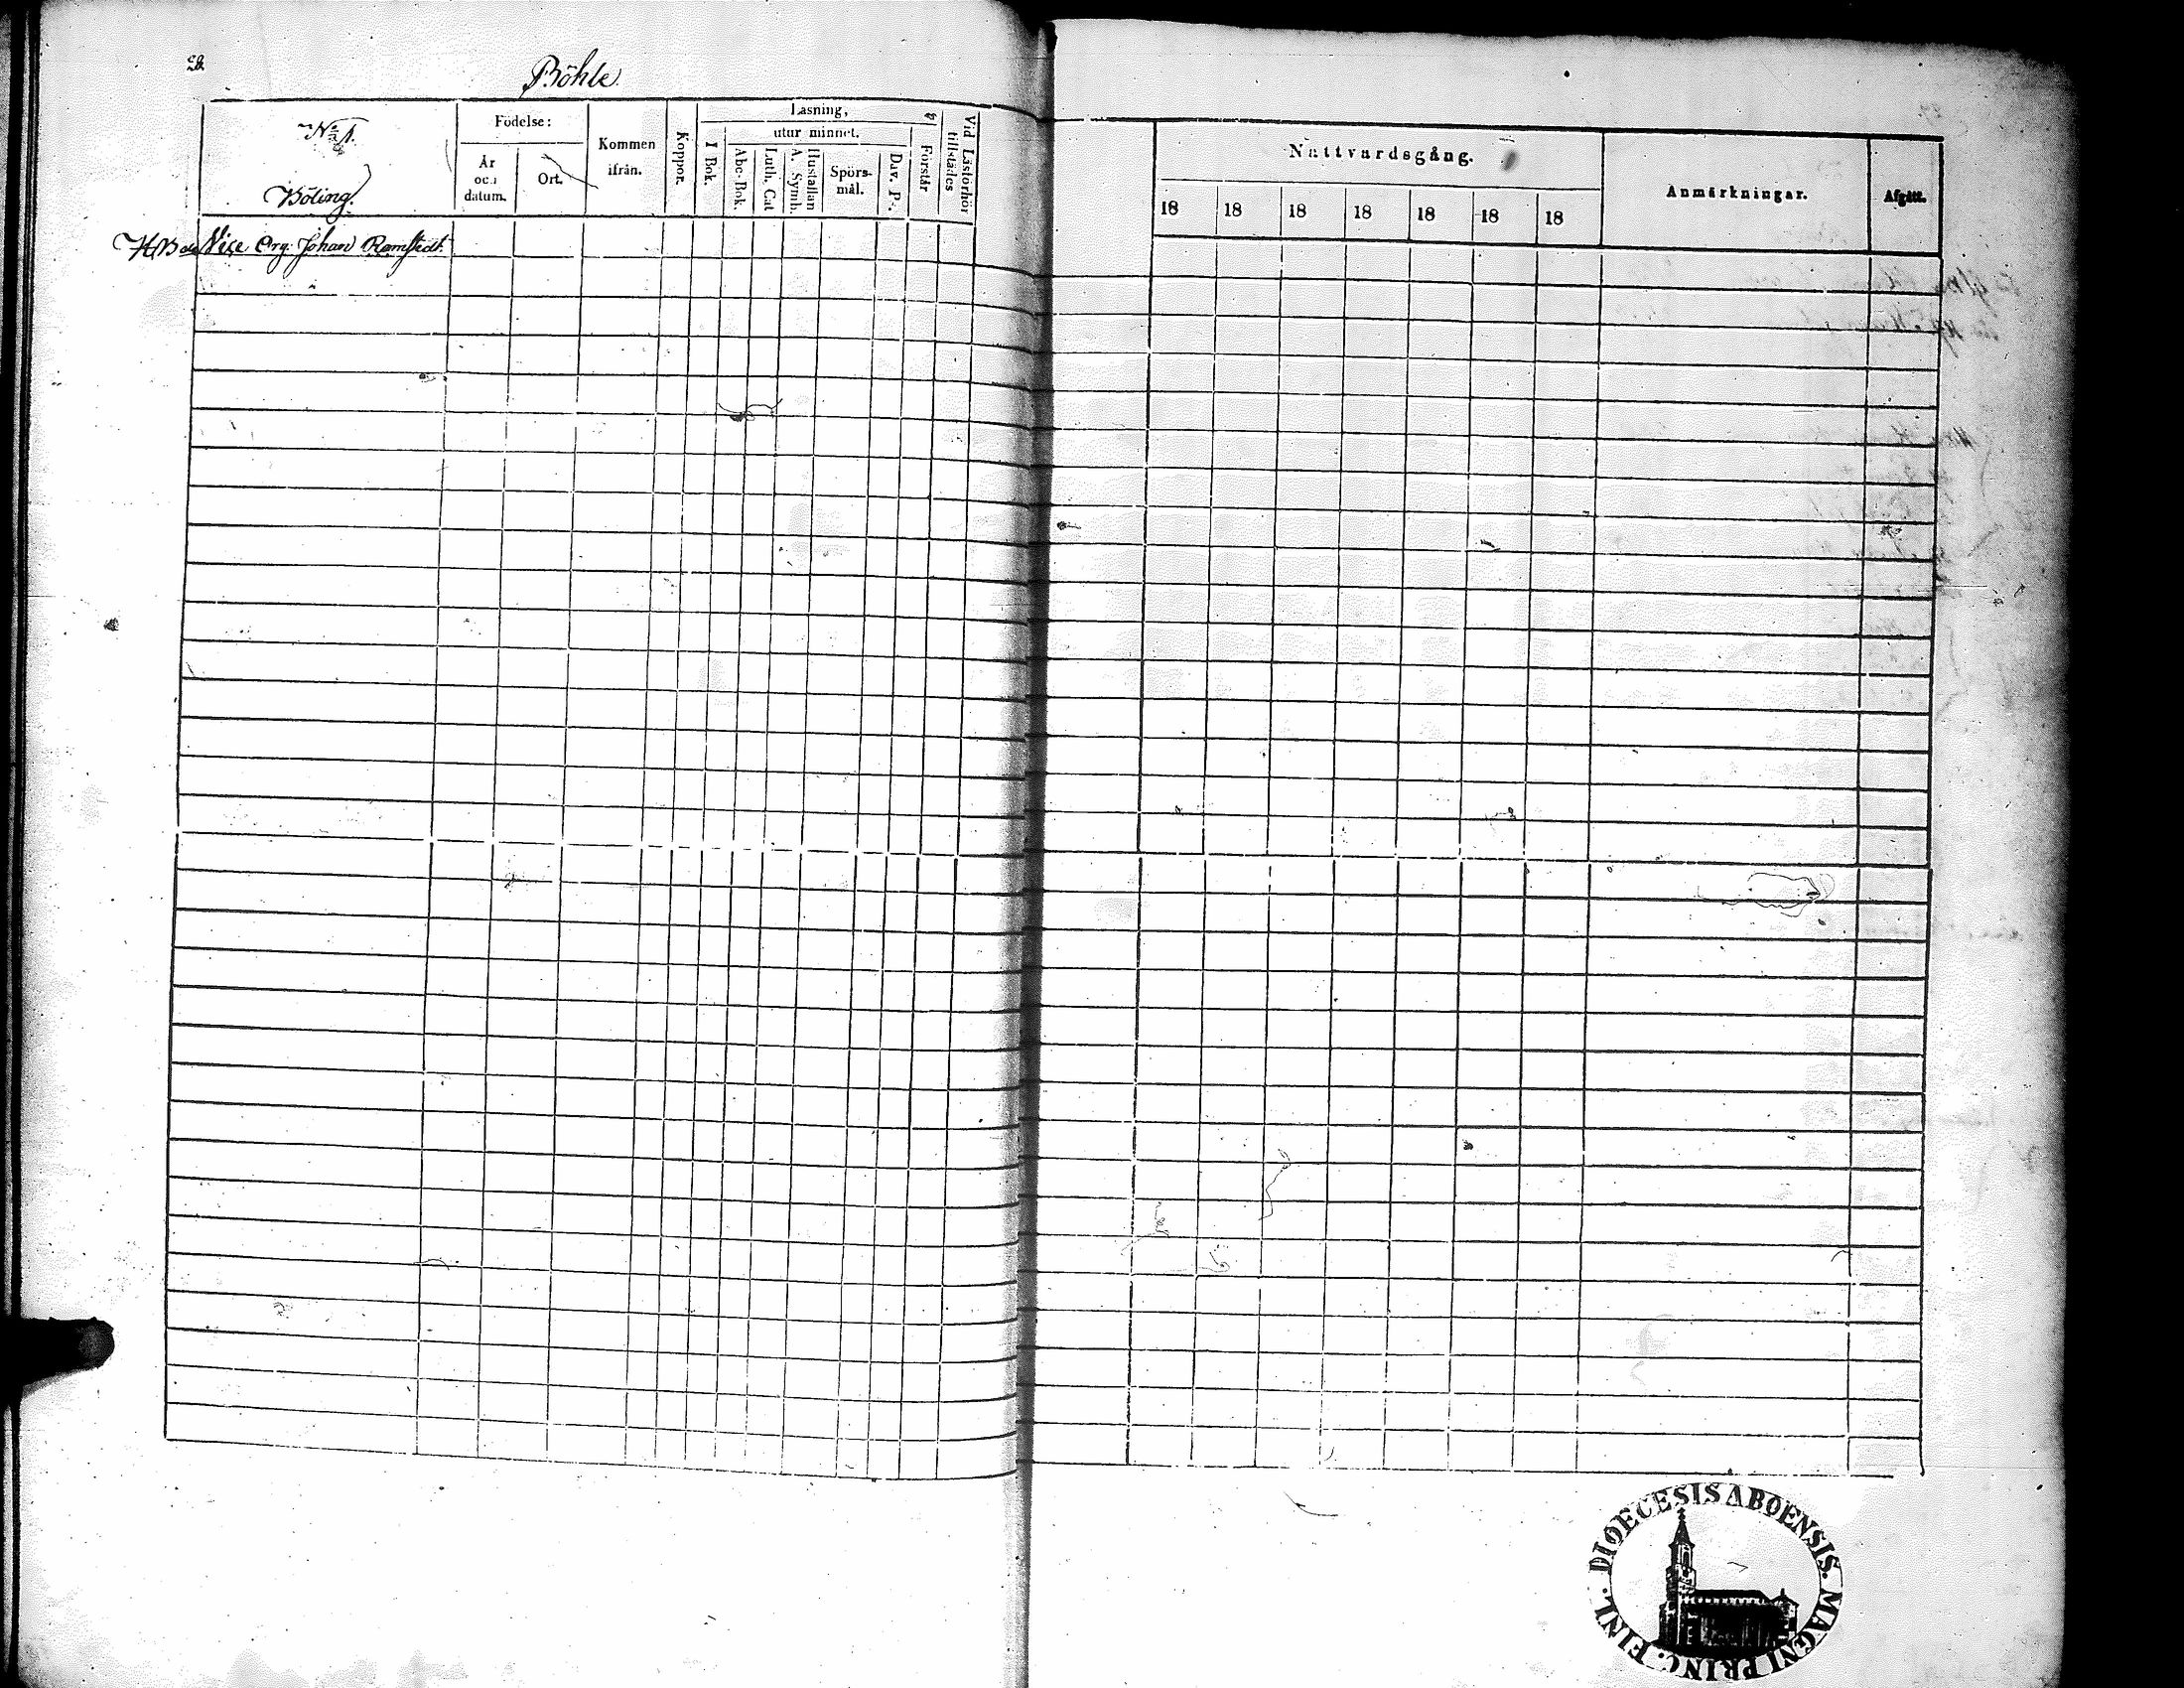 28.
Böhle.
No 1.
Böling.
Födelse:
År och datum.
Ort.
Kommen ifrån.
Koppor.
Läsning,
utur minnet.
I Bok.
Abc-Bok.
Luth. Cat
A. Symb.
Hustaflan
Spörsmål.
Dav. Ps.
Förstår
Vid Läsförhör tillstädes
Vice Org. Johan Ramstedt.
Nattvardsgång.
18 18 18 18 18 18 18
Anmärkningar.
Afgått.
DIOECESIS ABOENSIS. MAGNI PRINC. FINL.